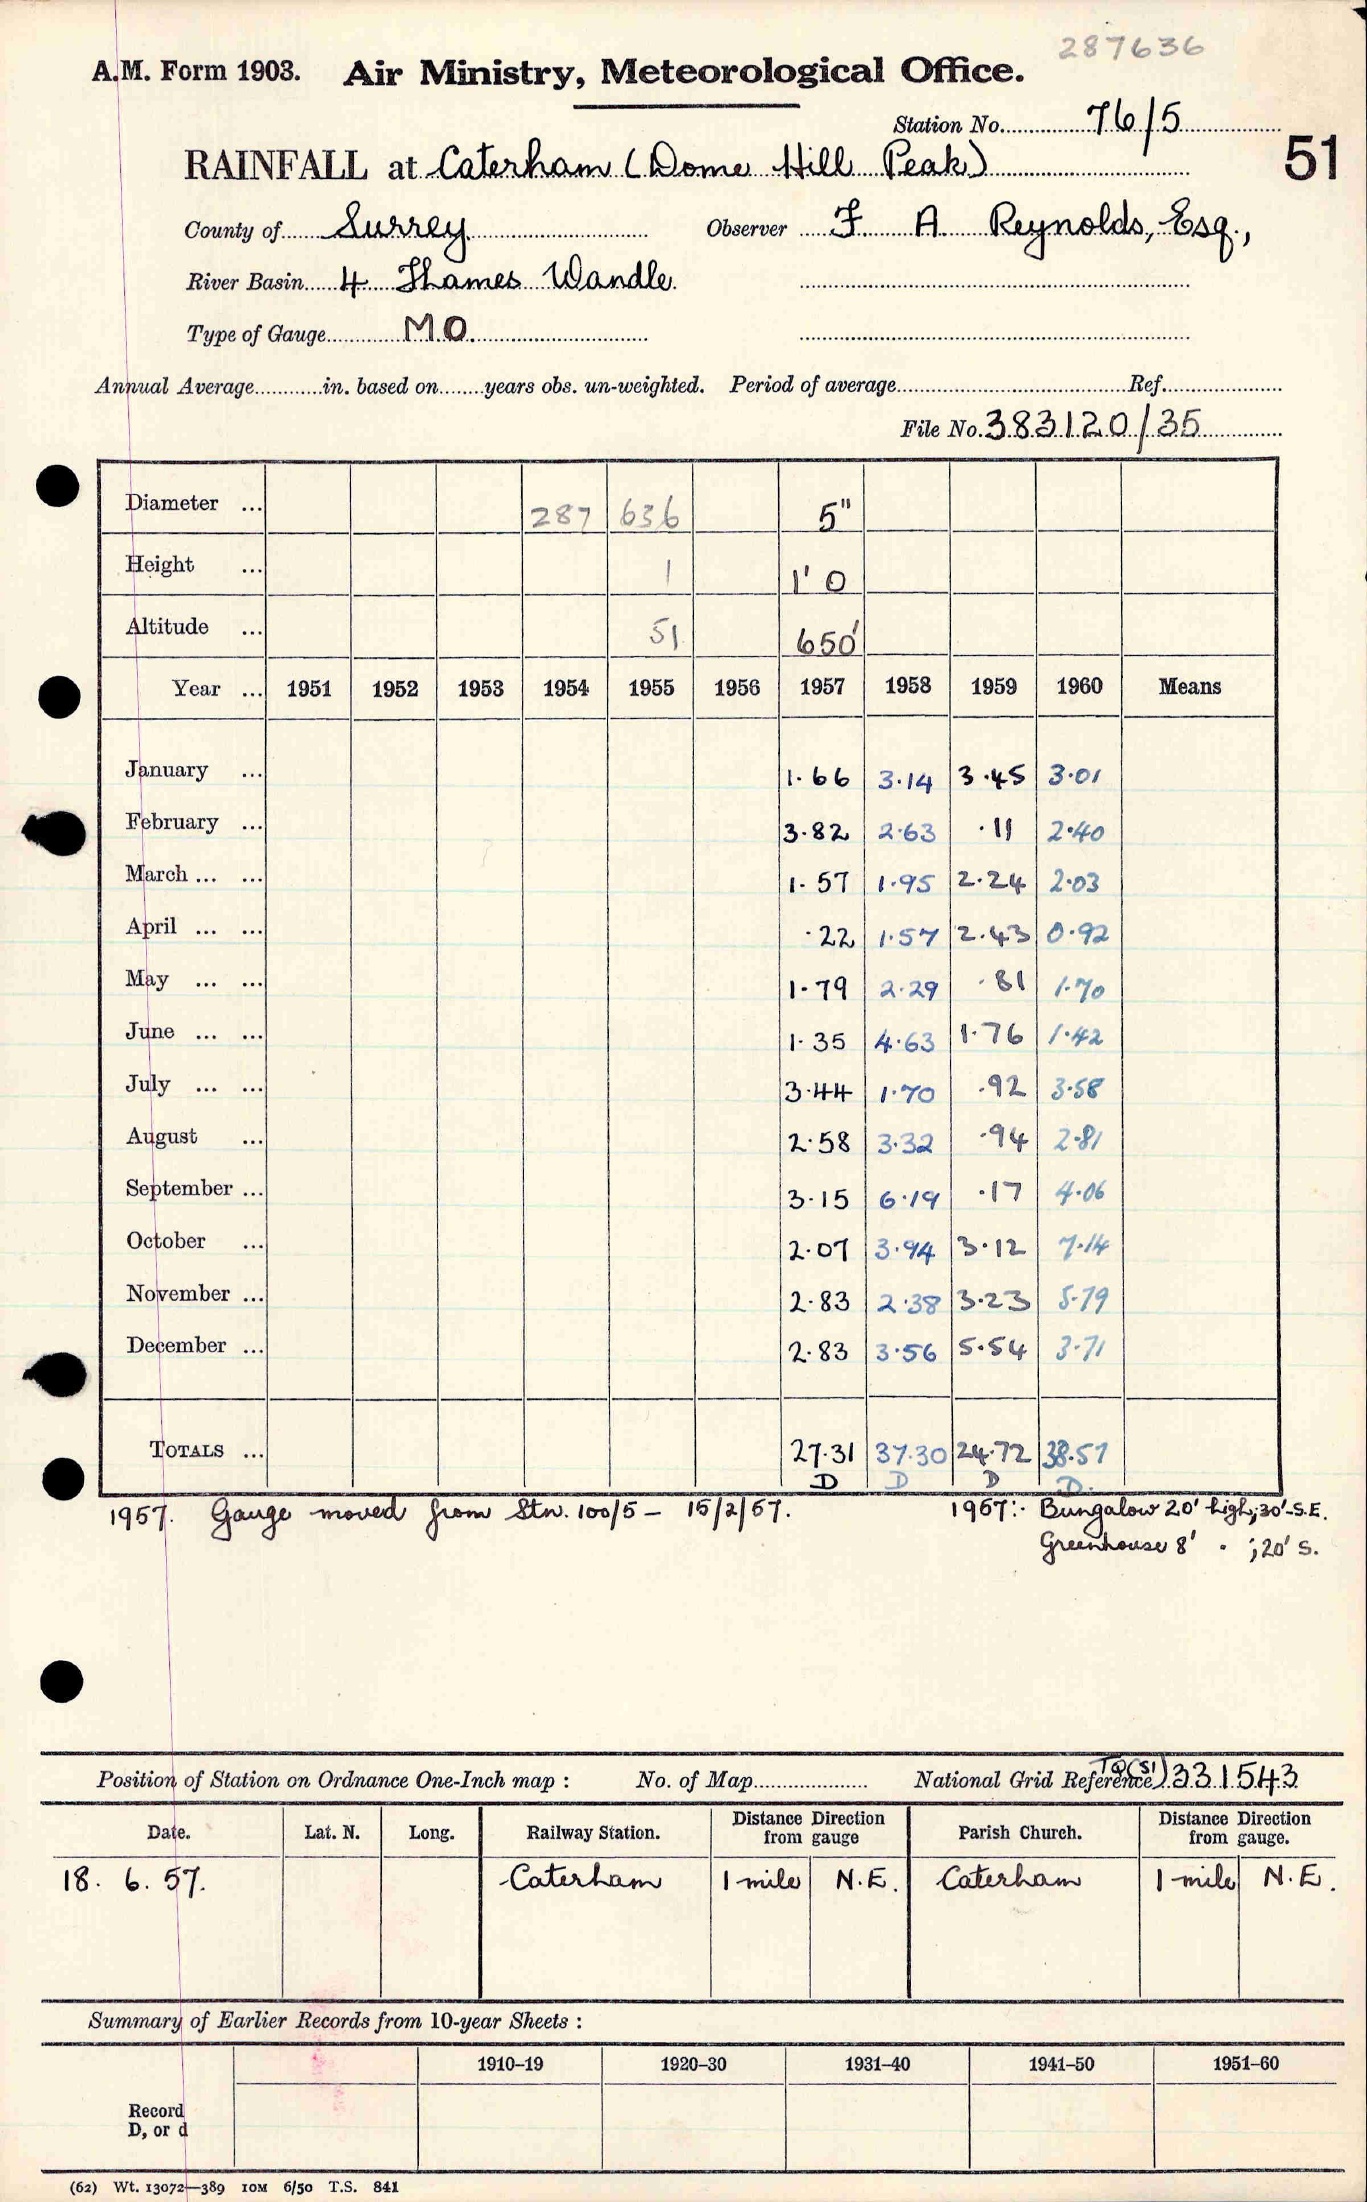 287636
A.M. Form 1903. Air Ministry, Meteorological Office.
Station No. 76/5
51
RAINFALL at Caterham (Dome Hill Peak)
County of Surrey Observer F A Reynolds, Esq.,
River Basin 4 Thames Wandle
Type of Gauge MO.
Annual Average in. based on years obs. un-weighted. Period of average Ref.
File No. 383120/35
Diameter ... 287 636 5"
Height ... 1 1' 0
Altitude ... 51 650'
Year ... 1951 1952 1953 1954 1955 1956 1957 1958 1959 1960 Means
January ... 1.66 3.14 3.45 3.01
February ... 3.82 2.63 .11 2.40
March ... ... 1.57 1.95 2.24 2.03
April ... ... .22 1.57 2.43 0.92
May ... ... 1.79 2.29 .81 1.70
June ... ... 1.35 4.63 1.76 1.42
July ... ... 3.44 1.70 .92 3.58
August ... 2.58 3.32 .94 2.81
September ... 3.15 6.19 .17 4.06
October ... 2.07 3.94 3.12 7.14
November ... 2.83 2.38 3.23 5.79
December ... 2.83 3.56 5.54 3.71
TOTALS ... 27.31 37.30 24.72 38.57
D D D D.
1957. Gauge moved from Stn. 100/5 – 15/2/57. 1957:- Bungalow 20' high; 30'-S.E.
Greenhouse 8' " ; 20' S.
Position of Station on Ordnance One-Inch map : No. of Map National Grid Reference TQ(51) 331543
Date. Lat. N. Long. Railway Station. Distance Direction from gauge Parish Church. Distance Direction from gauge.
18. 6. 57. Caterham 1 mile N.E. Caterham 1 mile N.E.
Summary of Earlier Records from 10-year Sheets :
1910–19 1920–30 1931–40 1941–50 1951–60
Record
D, or d
(62) Wt. 13072—389 10M 6/50 T.S. 841